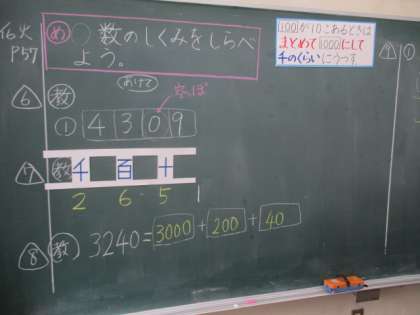 6/火
P57
め 数のしくみをしらべ
よう。
100が10こあるときは
まとめて1000にして
千のくらいにうつす
あけて
6 教
空っぽ
① 4 3 0 9
7 教 千 百 十
2 6 5 1
8 教 3240=3000+200+40
①